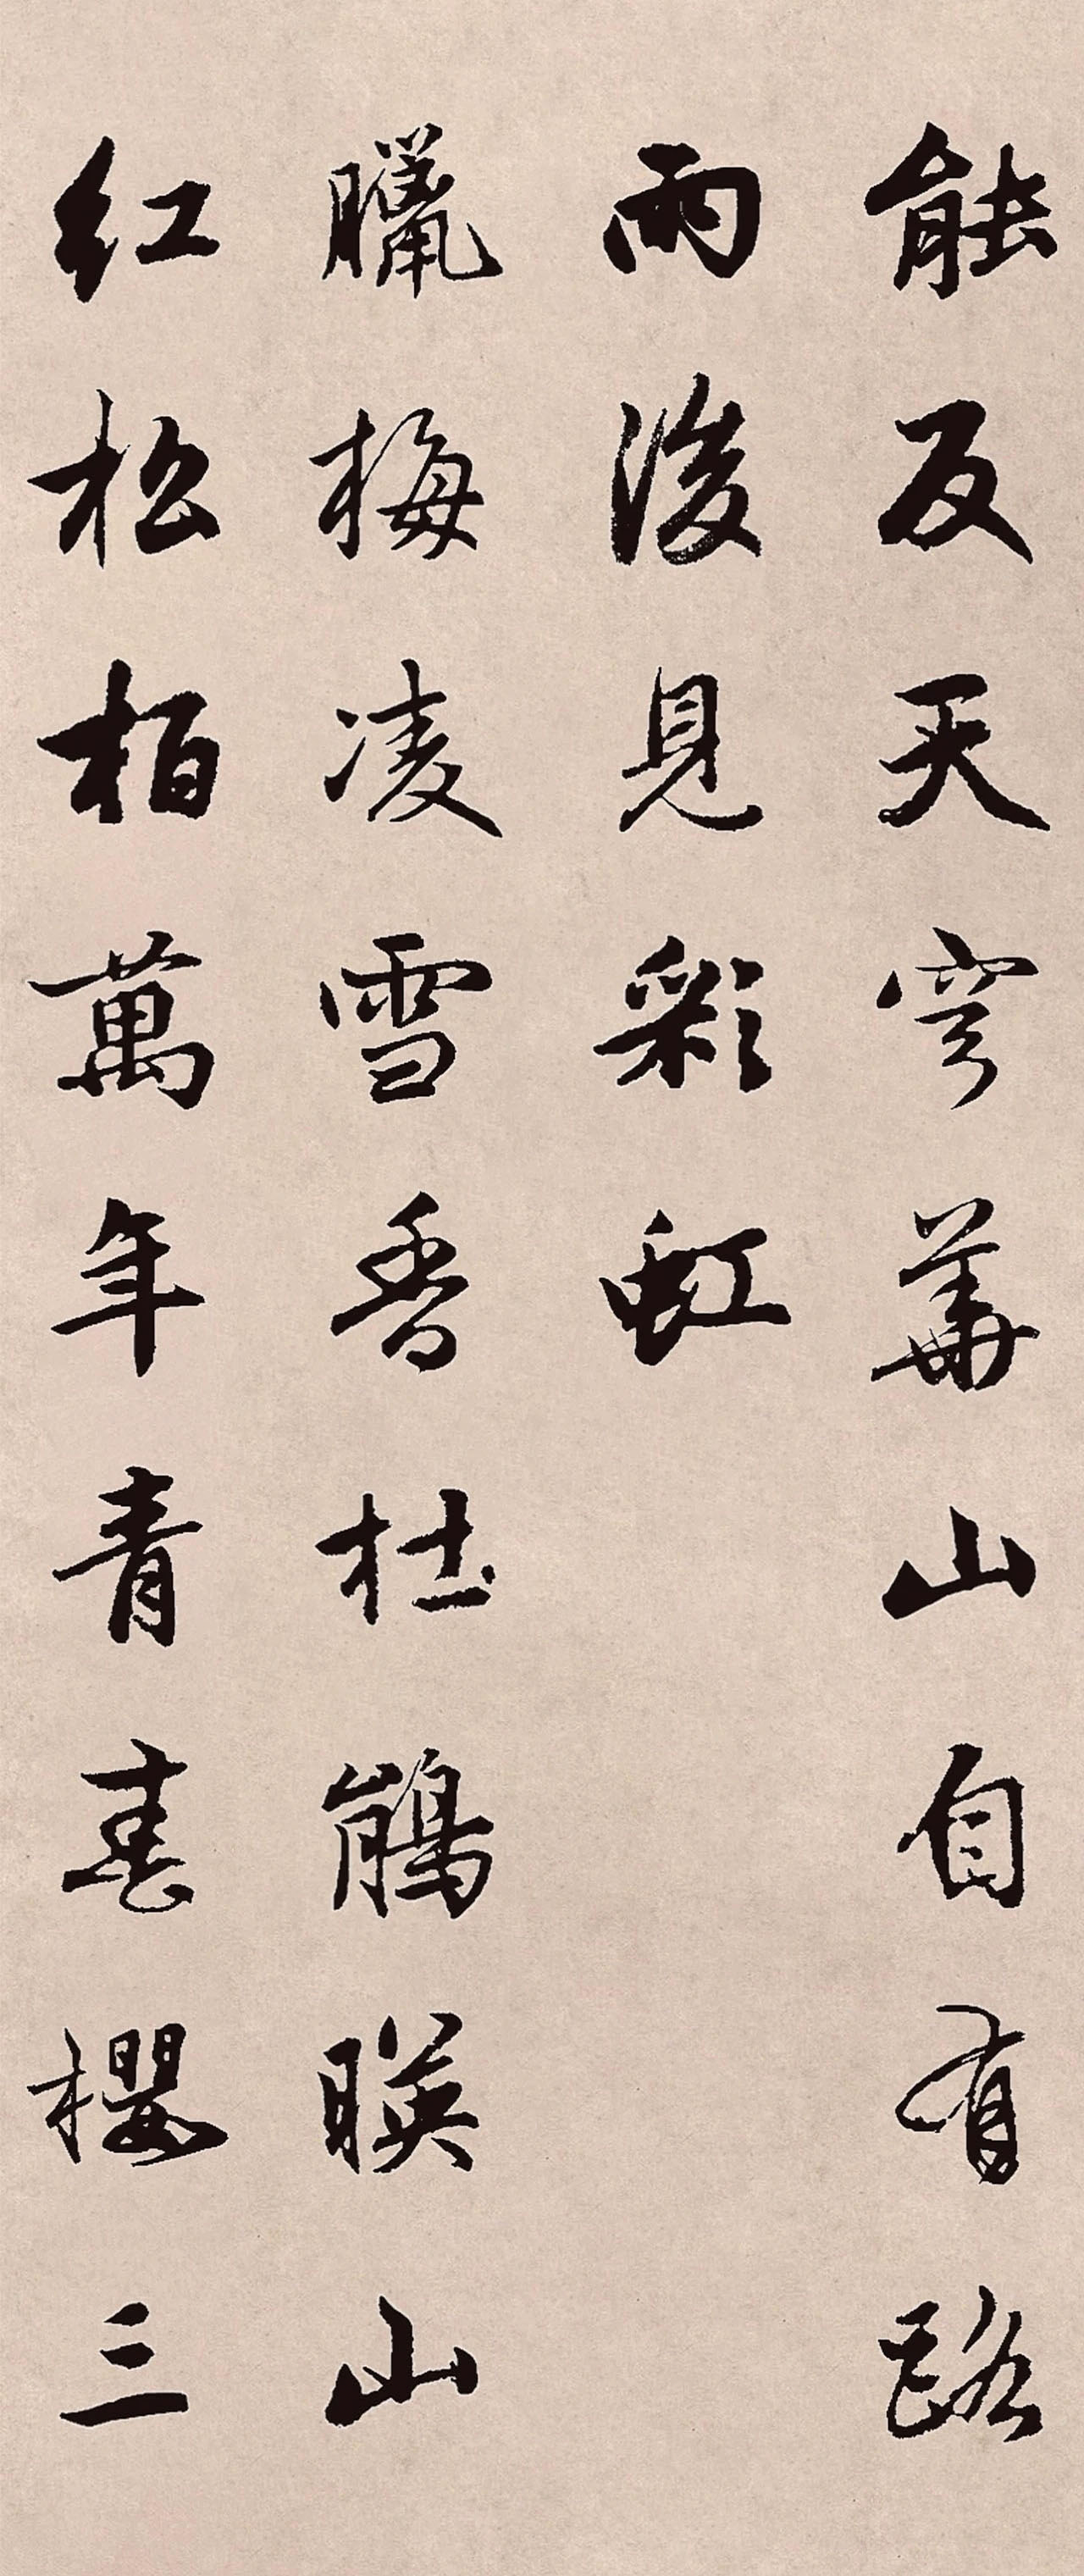 能反天穹華山自有路
雨後見彩虹
臘梅凌雪香杜鵑暎山
紅松柏萬年青春櫻三